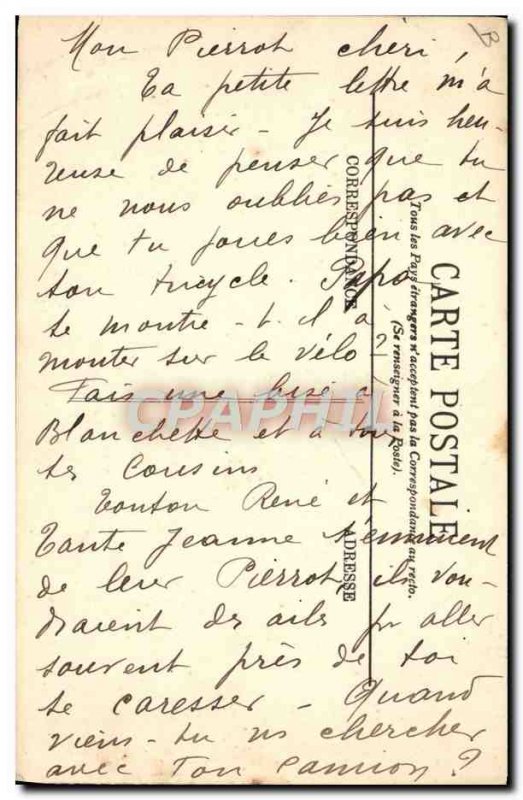 B
Mon Pierrot chéri,
Ta petite lettre m'a
fait plaisir - Je suis heu-
reuse de penser que tu
ne nous oublies pas et
que tu joues bien avec
ton tricycle. Pépé
te montre-t-il à
monter sur le vélo?
Fais une bise à
Blanchette et à tous
tes cousins
Tonton René et
Tante Jeanne s'ennuient
de leur Pierrot, ils vou-
draient des ailes pr aller
souvent près de toi
te caresser - Quand
viens-tu ns chercher
avec Ton camion?
CARTE POSTALE
Tous les Pays étrangers n'acceptent pas la Correspondance au recto.
(Se renseigner à la Poste).
CORRESPONDANCE
ADRESSE
CPAPHIL